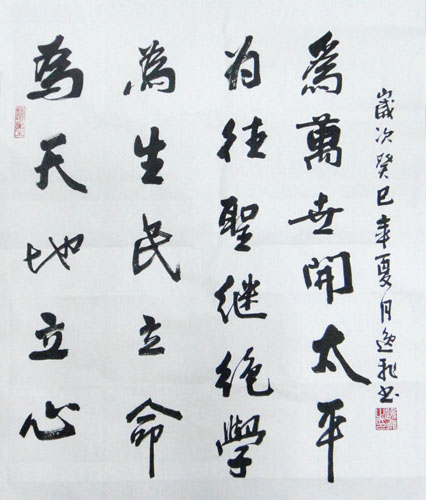 為天地立心
為生民立命
为往聖继绝學
爲萬世開太平
歲次癸巳年夏月逸書